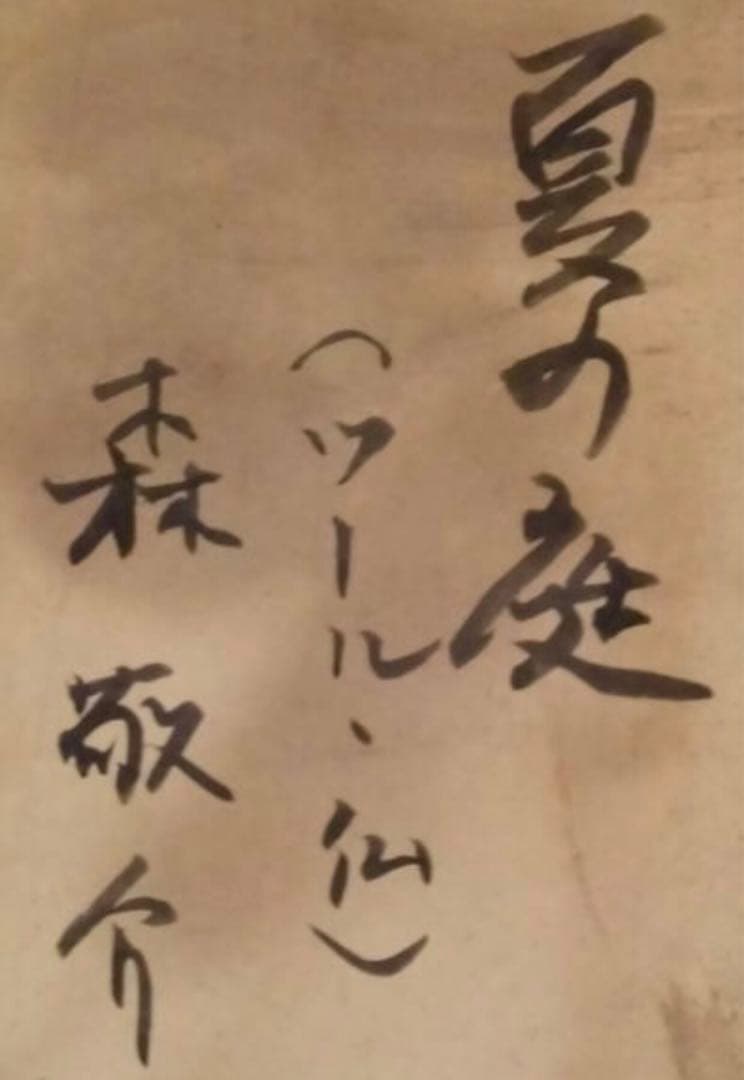 夏の庭
（ツール・仏）
森 敬介